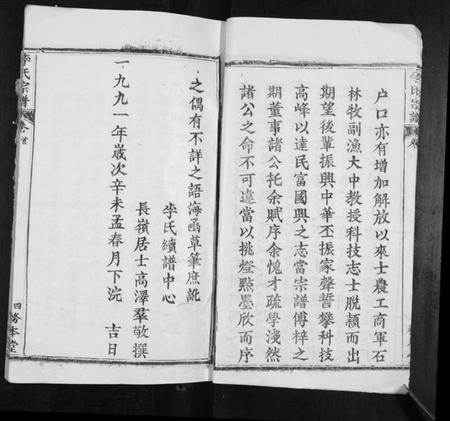 户口亦有增加解放以來士農工商軍石
林牧副漁大中教授科技志士脱穎而出
期望後輩振興中華丕振家聲誓攀科技
高峰以達民富國興之志當宗譜傅梓之
期董事諸公托余賦序余愧才疏學淺然
諸公之命不可違當以挑燈點墨欣而序
李氏宗譜
卷首
之偶有不詳之語海函草筆庶訛
李氏續譜中心
長嶺居士高澤羣敬撰
一九九一年歲次辛未孟春月下浣 吉日
李氏宗譜 卷首
四 務本堂